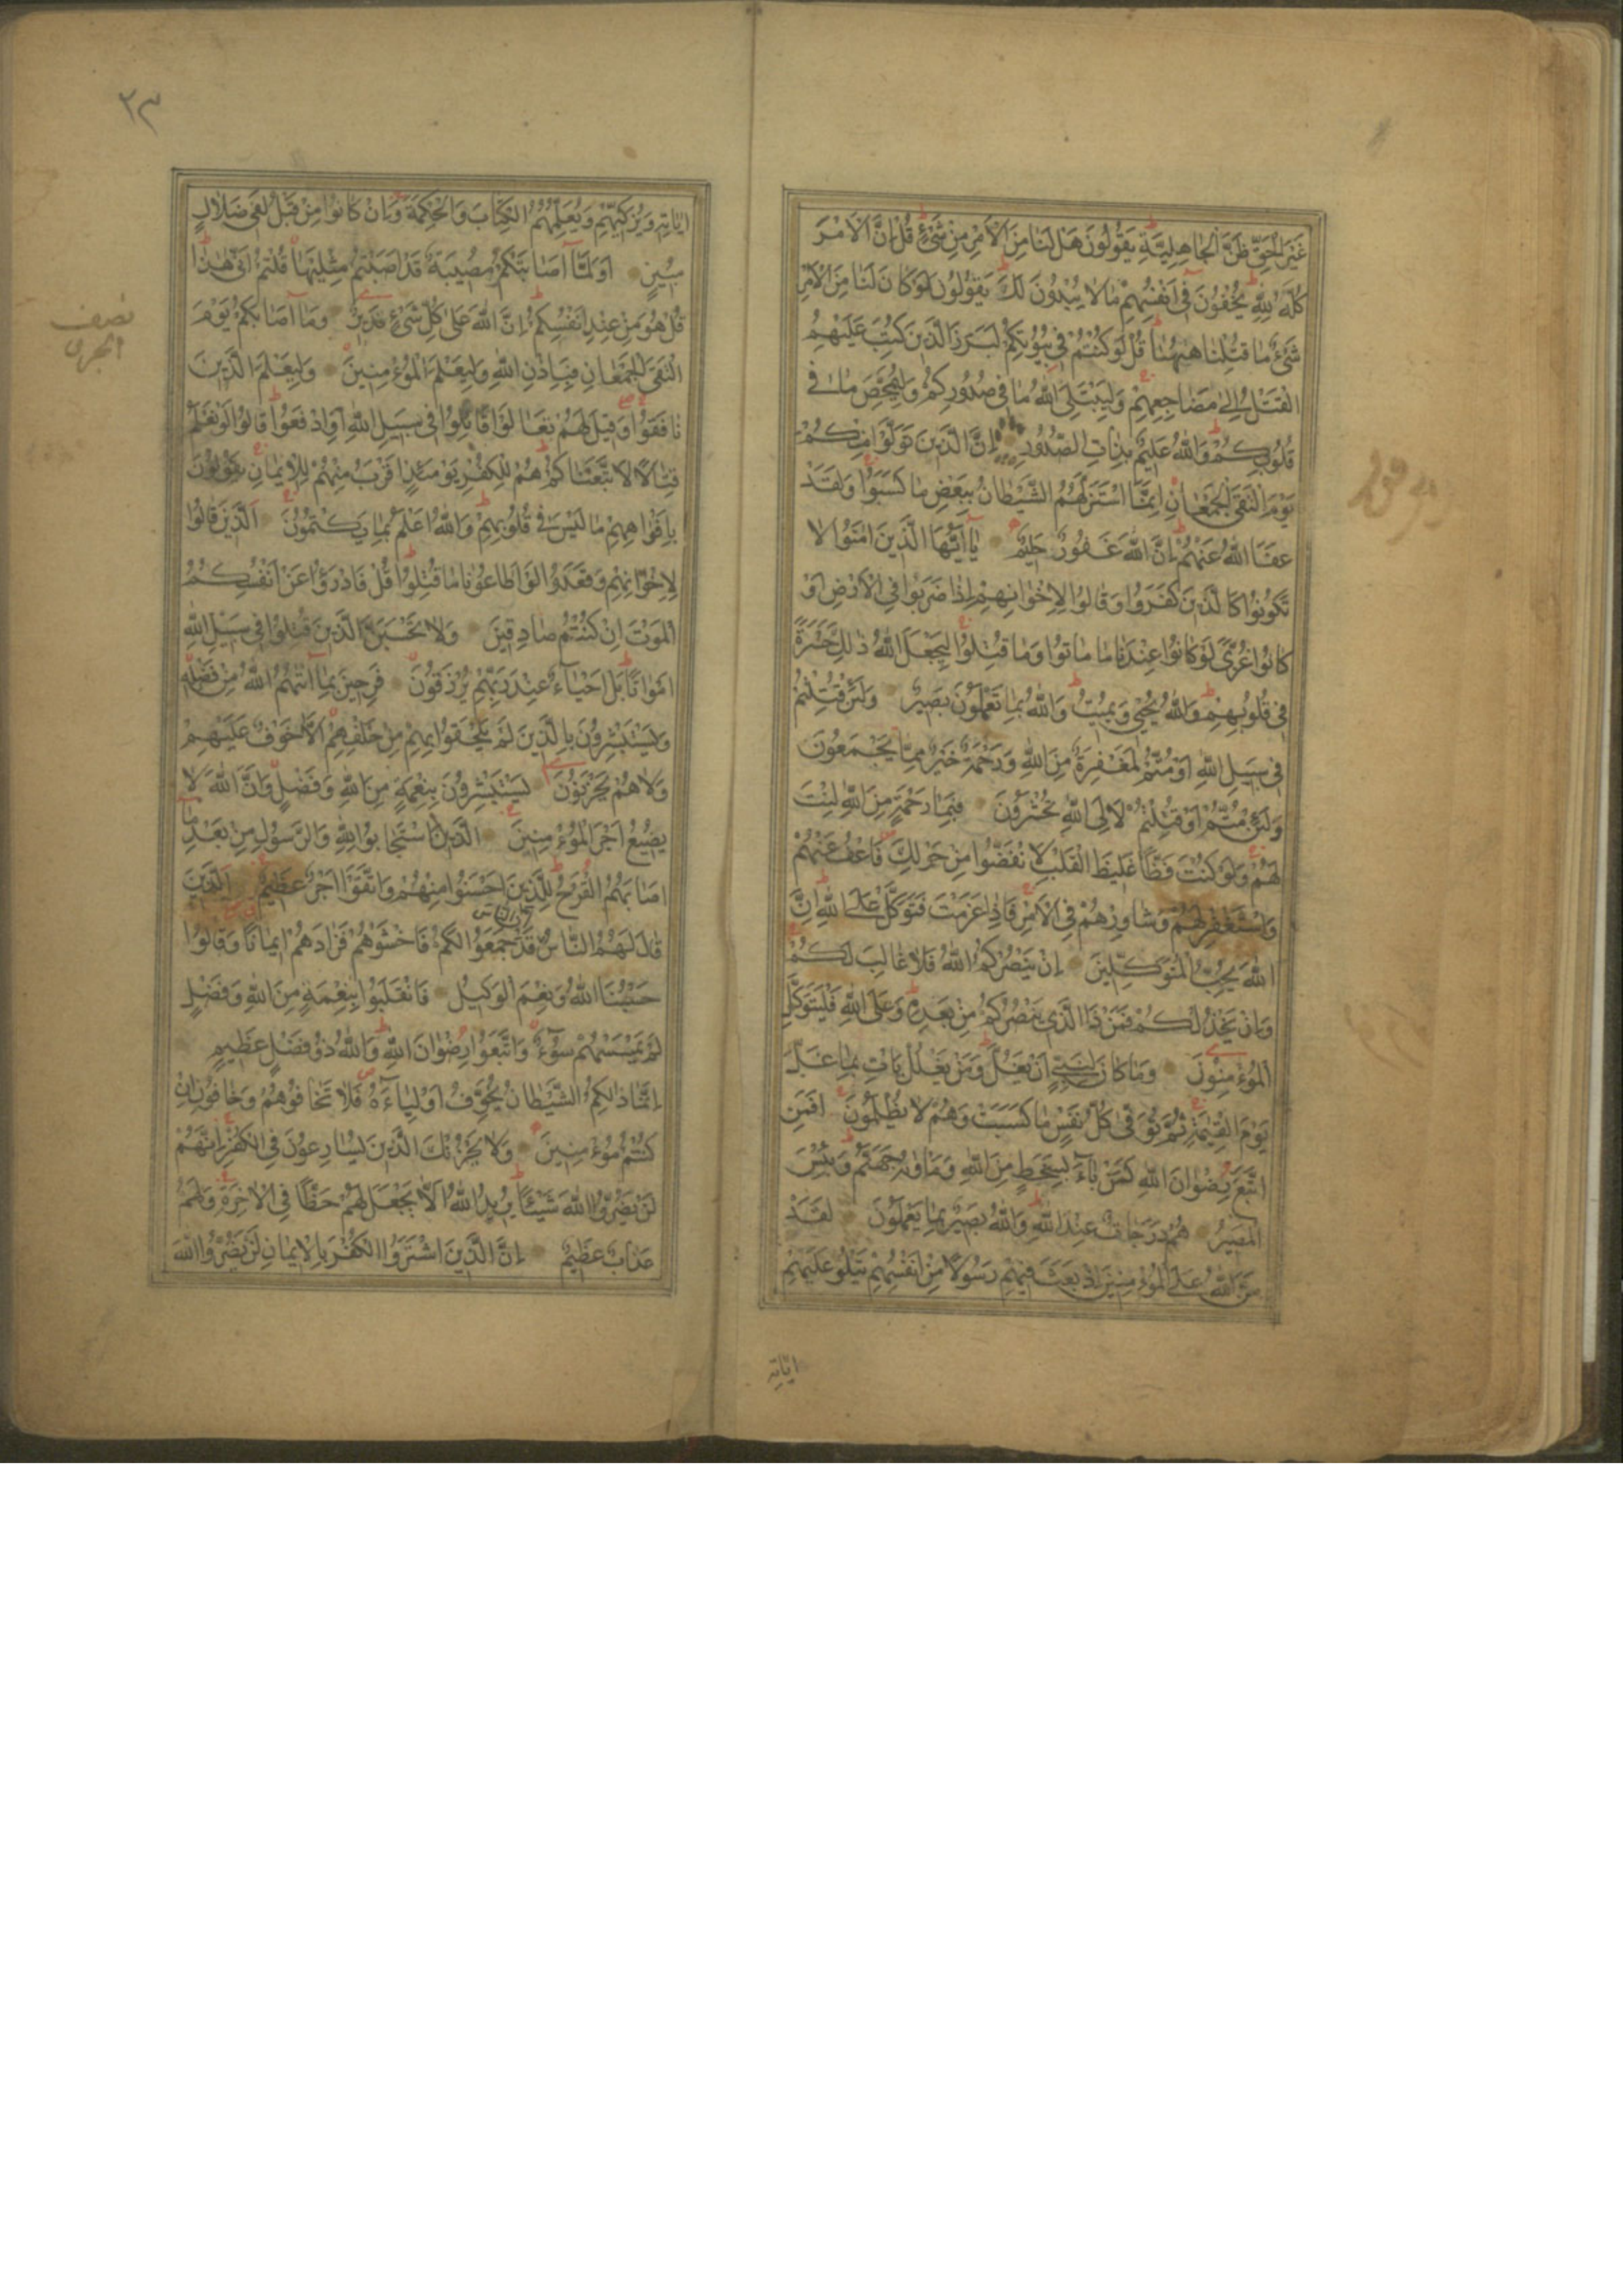 غَيْرَ الْحَقِّ ظَنَّ الْجَاهِلِيَّةِ يَقُولُونَ هَلْ لَنَا مِنَ الْاَمْرِ مِنْ شَيْءٍ قُلْ اِنَّ الْاَمْرَ
كُلَّهُ لِلّٰهِ يُخْفُونَ فِي اَنْفُسِهِمْ مَا لَا يُبْدُونَ لَكَ يَقُولُونَ لَوْ كَانَ لَنَا مِنَ الْاَمْرِ
شَيْءٌ مَا قُتِلْنَا هٰهُنَا قُلْ لَوْ كُنْتُمْ فِي بُيُوتِكُمْ لَبَرَزَ الَّذِينَ كُتِبَ عَلَيْهِمُ
الْقَتْلُ اِلٰى مَضَاجِعِهِمْ وَلِيَبْتَلِيَ اللّٰهُ مَا فِي صُدُورِكُمْ وَلِيُمَحِّصَ مَا فِي
قُلُوبِكُمْ وَاللّٰهُ عَلِيمٌ بِذَاتِ الصُّدُورِ اِنَّ الَّذِينَ تَوَلَّوْا مِنْكُمْ
يَوْمَ الْتَقَى الْجَمْعَانِ اِنَّمَا اسْتَزَلَّهُمُ الشَّيْطَانُ بِبَعْضِ مَا كَسَبُوا وَلَقَدْ
عَفَا اللّٰهُ عَنْهُمْ اِنَّ اللّٰهَ غَفُورٌ حَلِيمٌ يَا اَيُّهَا الَّذِينَ اٰمَنُوا لَا
تَكُونُوا كَالَّذِينَ كَفَرُوا وَقَالُوا لِاِخْوَانِهِمْ اِذَا ضَرَبُوا فِي الْاَرْضِ اَوْ
كَانُوا غُزًّى لَوْ كَانُوا عِنْدَنَا مَا مَاتُوا وَمَا قُتِلُوا لِيَجْعَلَ اللّٰهُ ذٰلِكَ حَسْرَةً
فِي قُلُوبِهِمْ وَاللّٰهُ يُحْيِي وَيُمِيتُ وَاللّٰهُ بِمَا تَعْمَلُونَ بَصِيرٌ وَلَئِنْ قُتِلْتُمْ
فِي سَبِيلِ اللّٰهِ اَوْ مُتُّمْ لَمَغْفِرَةٌ مِنَ اللّٰهِ وَرَحْمَةٌ خَيْرٌ مِمَّا يَجْمَعُونَ
وَلَئِنْ مُتُّمْ اَوْ قُتِلْتُمْ لَاِلَى اللّٰهِ تُحْشَرُونَ فَبِمَا رَحْمَةٍ مِنَ اللّٰهِ لِنْتَ
لَهُمْ وَلَوْ كُنْتَ فَظًّا غَلِيظَ الْقَلْبِ لَانْفَضُّوا مِنْ حَوْلِكَ فَاعْفُ عَنْهُمْ
وَاسْتَغْفِرْ لَهُمْ وَشَاوِرْهُمْ فِي الْاَمْرِ فَاِذَا عَزَمْتَ فَتَوَكَّلْ عَلَى اللّٰهِ اِنَّ
اللّٰهَ يُحِبُّ الْمُتَوَكِّلِينَ اِنْ يَنْصُرْكُمُ اللّٰهُ فَلَا غَالِبَ لَكُمْ
وَاِنْ يَخْذُلْكُمْ فَمَنْ ذَا الَّذِي يَنْصُرُكُمْ مِنْ بَعْدِهِ وَعَلَى اللّٰهِ فَلْيَتَوَكَّلِ
الْمُؤْمِنُونَ وَمَا كَانَ لِنَبِيٍّ اَنْ يَغُلَّ وَمَنْ يَغْلُلْ يَاْتِ بِمَا غَلَّ
يَوْمَ الْقِيٰمَةِ ثُمَّ تُوَفّٰى كُلُّ نَفْسٍ مَا كَسَبَتْ وَهُمْ لَا يُظْلَمُونَ اَفَمَنِ
اتَّبَعَ رِضْوَانَ اللّٰهِ كَمَنْ بَاۤءَ بِسَخَطٍ مِنَ اللّٰهِ وَمَاْوٰيهُ جَهَنَّمُ وَبِئْسَ
الْمَصِيرُ هُمْ دَرَجَاتٌ عِنْدَ اللّٰهِ وَاللّٰهُ بَصِيرٌ بِمَا يَعْمَلُونَ لَقَدْ
مَنَّ اللّٰهُ عَلَى الْمُؤْمِنِينَ اِذْ بَعَثَ فِيهِمْ رَسُولًا مِنْ اَنْفُسِهِمْ يَتْلُو عَلَيْهِمْ
اٰيَاتِهِ
٢٣
اٰيَاتِهِ وَيُزَكِّيهِمْ وَيُعَلِّمُهُمُ الْكِتَابَ وَالْحِكْمَةَ وَاِنْ كَانُوا مِنْ قَبْلُ لَفِي ضَلَالٍ
مُبِينٍ اَوَلَمَّا اَصَابَتْكُمْ مُصِيبَةٌ قَدْ اَصَبْتُمْ مِثْلَيْهَا قُلْتُمْ اَنّٰى هٰذَا
قُلْ هُوَ مِنْ عِنْدِ اَنْفُسِكُمْ اِنَّ اللّٰهَ عَلٰى كُلِّ شَيْءٍ قَدِيرٌ وَمَا اَصَابَكُمْ يَوْمَ
الْتَقَى الْجَمْعَانِ فَبِاِذْنِ اللّٰهِ وَلِيَعْلَمَ الْمُؤْمِنِينَ وَلِيَعْلَمَ الَّذِينَ
نَافَقُوا وَقِيلَ لَهُمْ تَعَالَوْا قَاتِلُوا فِي سَبِيلِ اللّٰهِ اَوِ ادْفَعُوا قَالُوا لَوْ نَعْلَمُ
قِتَالًا لَاتَّبَعْنَاكُمْ هُمْ لِلْكُفْرِ يَوْمَئِذٍ اَقْرَبُ مِنْهُمْ لِلْاِيمَانِ يَقُولُونَ
بِاَفْوَاهِهِمْ مَا لَيْسَ فِي قُلُوبِهِمْ وَاللّٰهُ اَعْلَمُ بِمَا يَكْتُمُونَ اَلَّذِينَ قَالُوا
لِاِخْوَانِهِمْ وَقَعَدُوا لَوْ اَطَاعُونَا مَا قُتِلُوا قُلْ فَادْرَؤُا عَنْ اَنْفُسِكُمُ
الْمَوْتَ اِنْ كُنْتُمْ صَادِقِينَ وَلَا تَحْسَبَنَّ الَّذِينَ قُتِلُوا فِي سَبِيلِ اللّٰهِ
اَمْوَاتًا بَلْ اَحْيَاۤءٌ عِنْدَ رَبِّهِمْ يُرْزَقُونَ فَرِحِينَ بِمَا اٰتٰيهُمُ اللّٰهُ مِنْ فَضْلِهِ
وَيَسْتَبْشِرُونَ بِالَّذِينَ لَمْ يَلْحَقُوا بِهِمْ مِنْ خَلْفِهِمْ اَلَّا خَوْفٌ عَلَيْهِمْ
وَلَا هُمْ يَحْزَنُونَ يَسْتَبْشِرُونَ بِنِعْمَةٍ مِنَ اللّٰهِ وَفَضْلٍ وَاَنَّ اللّٰهَ لَا
يُضِيعُ اَجْرَ الْمُؤْمِنِينَ اَلَّذِينَ اسْتَجَابُوا لِلّٰهِ وَالرَّسُولِ مِنْ بَعْدِ مَا
اَصَابَهُمُ الْقَرْحُ لِلَّذِينَ اَحْسَنُوا مِنْهُمْ وَاتَّقَوْا اَجْرٌ عَظِيمٌ اَلَّذِينَ
قَالَ لَهُمُ النَّاسُ اِنَّ النَّاسَ قَدْ جَمَعُوا لَكُمْ فَاخْشَوْهُمْ فَزَادَهُمْ اِيمَانًا وَقَالُوا
حَسْبُنَا اللّٰهُ وَنِعْمَ الْوَكِيلُ فَانْقَلَبُوا بِنِعْمَةٍ مِنَ اللّٰهِ وَفَضْلٍ
لَمْ يَمْسَسْهُمْ سُوۤءٌ وَاتَّبَعُوا رِضْوَانَ اللّٰهِ وَاللّٰهُ ذُو فَضْلٍ عَظِيمٍ
اِنَّمَا ذٰلِكُمُ الشَّيْطَانُ يُخَوِّفُ اَوْلِيَاۤءَهُ فَلَا تَخَافُوهُمْ وَخَافُونِ اِنْ
كُنْتُمْ مُؤْمِنِينَ وَلَا يَحْزُنْكَ الَّذِينَ يُسَارِعُونَ فِي الْكُفْرِ اِنَّهُمْ
لَنْ يَضُرُّوا اللّٰهَ شَيْئًا يُرِيدُ اللّٰهُ اَلَّا يَجْعَلَ لَهُمْ حَظًّا فِي الْاٰخِرَةِ وَلَهُمْ
عَذَابٌ عَظِيمٌ اِنَّ الَّذِينَ اشْتَرَوُا الْكُفْرَ بِالْاِيمَانِ لَنْ يَضُرُّوا اللّٰهَ
نصف
الحزب